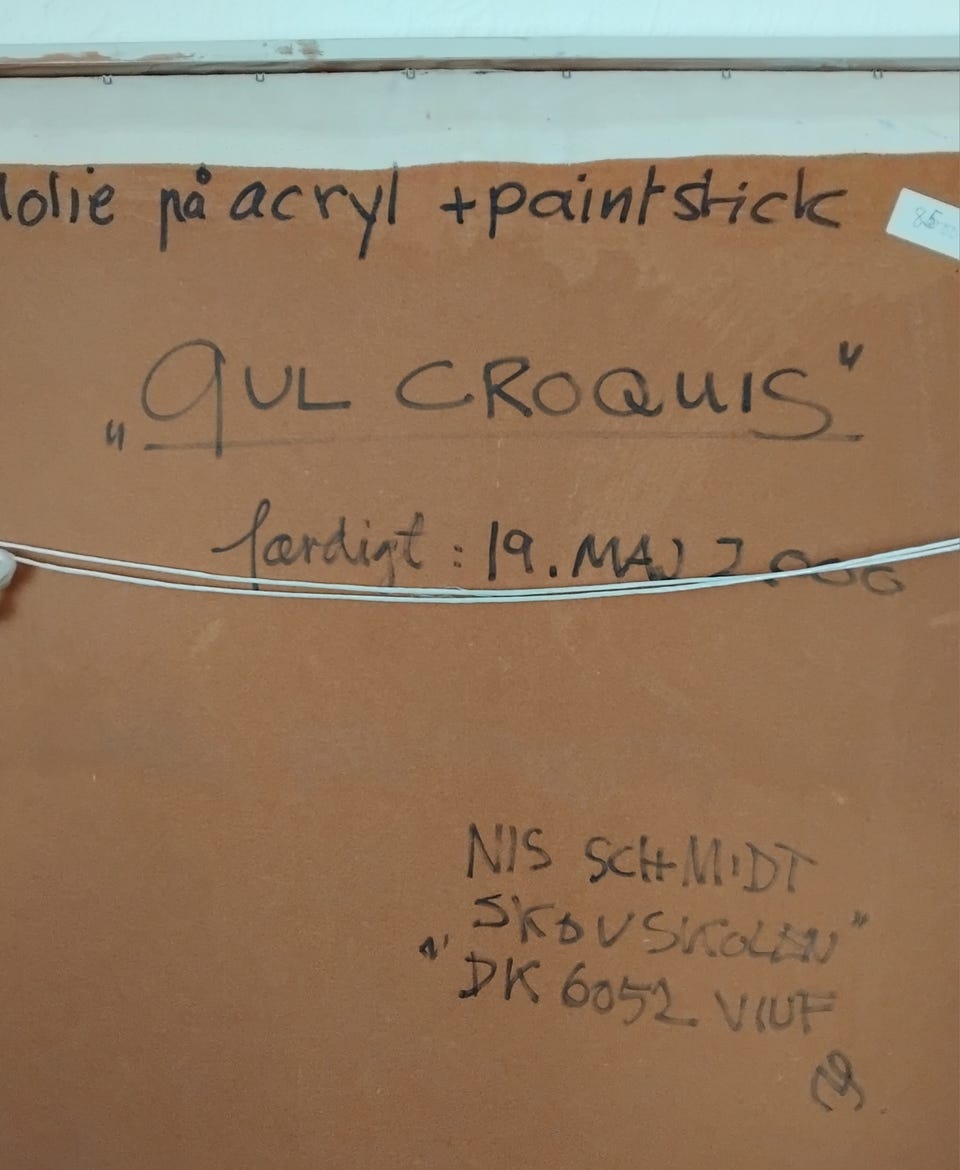 olie på acryl + paintstick
85
„GUL CROQUIS"
færdigt : 19. MAJ 2000
NIS SCHMIDT
„SKOVSKOLEN"
DK 6052 VIUF